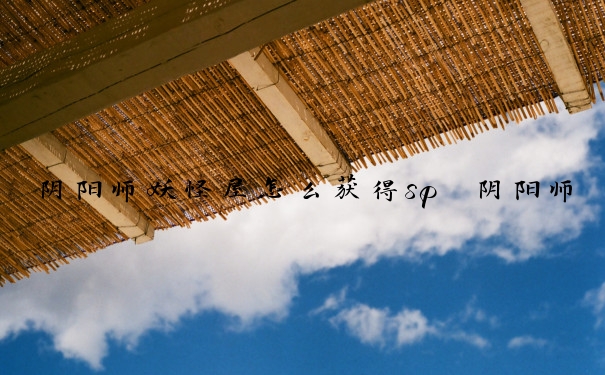 阴阳师妖怪屋怎么获得sp 阴阳师